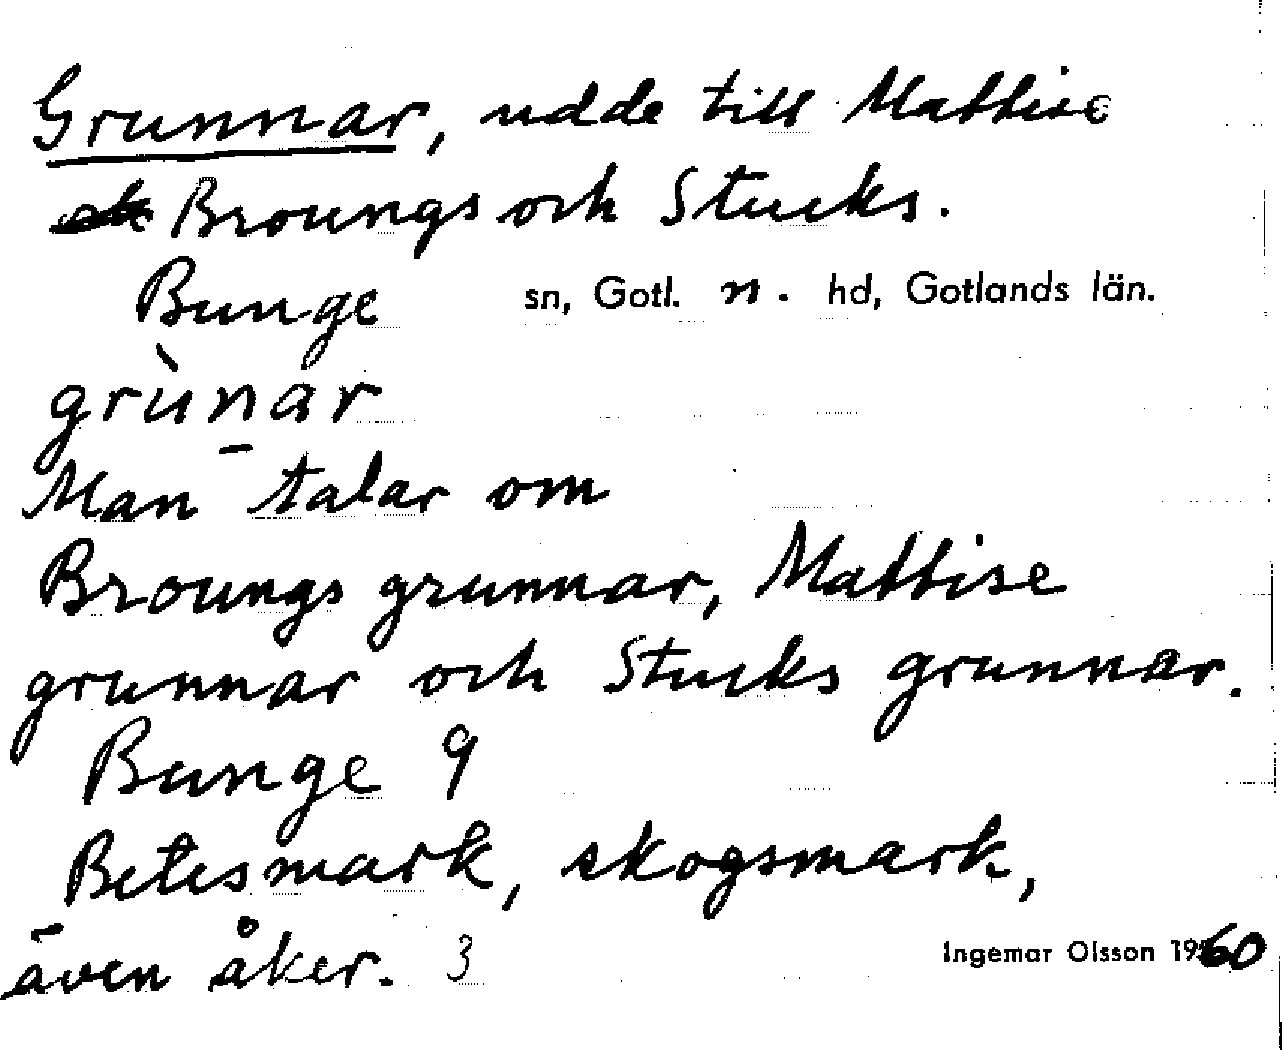 Grunnar, udde till Mattise
Broungs och Stucks.
Bunge sn, Gotl. n. hd, Gotlands län.
grùn̲ar
Man talar om
Broungs grunnar, Mattise
grunnar och Stucks grunnar.
Bunge 9
Betesmark, skogsmark,
även åker. 3
Ingemar Olsson 1960